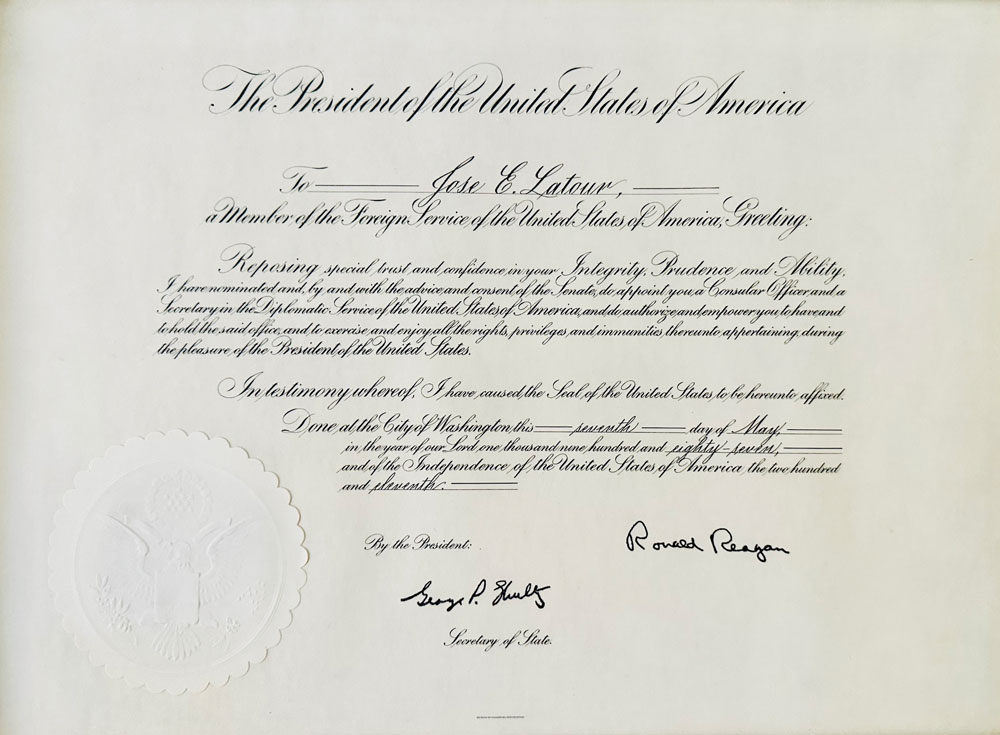 The President of the United States of America
To Jose E. Latour,
a Member of the Foreign Service of the United States of America, Greeting:
Reposing special trust and confidence in your Integrity, Prudence and Ability,
I have nominated and, by and with the advice and consent of the Senate, do appoint you a Consular Officer and a
Secretary in the Diplomatic Service of the United States of America, and do authorize and empower you to have and
to hold the said office, and to exercise and enjoy all the rights, privileges, and immunities thereunto appertaining, during
the pleasure of the President of the United States.
In testimony whereof, I have caused the Seal of the United States to be hereunto affixed.
Done at the City of Washington this seventh day of May,
in the year of our Lord one thousand nine hundred and eighty-seven,
and of the Independence of the United States of America the two hundred
and eleventh.
By the President:
Ronald Reagan
George P. Shultz
Secretary of State.